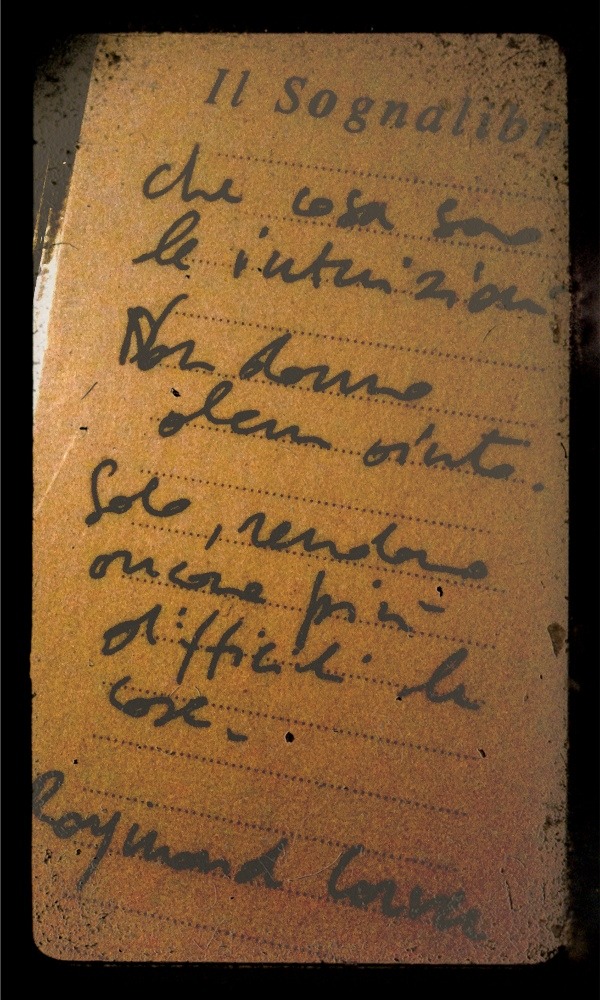 Il Sognalibr
che cosa sono
le intuizioni
Non danno
alcun aiuto.
Solo, rendono
ancora più
difficili le
cose.
Raymond Carver